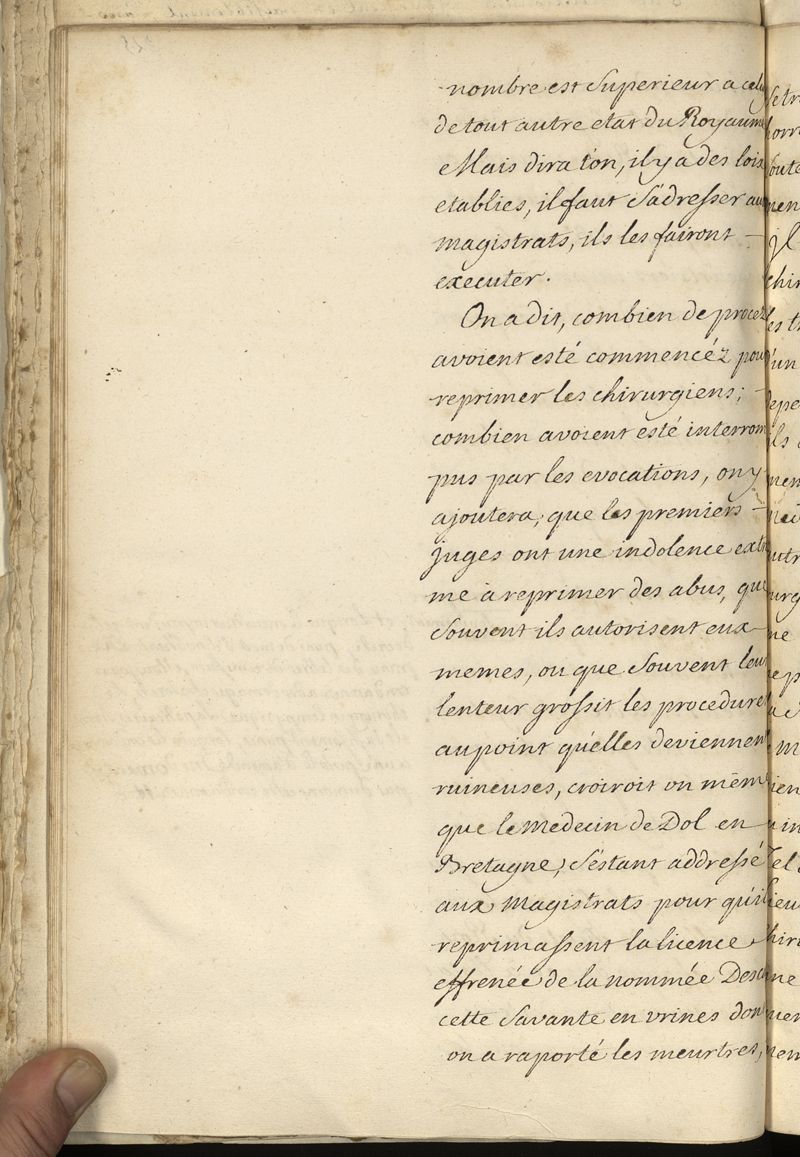 nombre est superieur a celuy
de tout autre etat du Royaume
Mais dira ton, il y a des loix
etablies, il faut s'adresser aux
magistrats, ils les fairont —
executer.
On a dit, combien de procez
avoient esté commencéz pour
reprimer les chirurgiens; —
combien avoient esté interrom
pus par les evocations, on y
ajoutera, que les premiers —
juges ont une indolence extre
me a reprimer des abus, que
souvent ils autorisent eux —
memes, ou que souvent leur
lenteur grossit les procedures
au point qu'elles deviennent
ruineuses, croiroit on même
que le medecin de Dol en —
Bretagne, s'estant addressé
aux magistrats pour qu'il
reprimassent la licence
effrenée de la nommée
cette savante en vrines dont
on a raporté les meurtres,